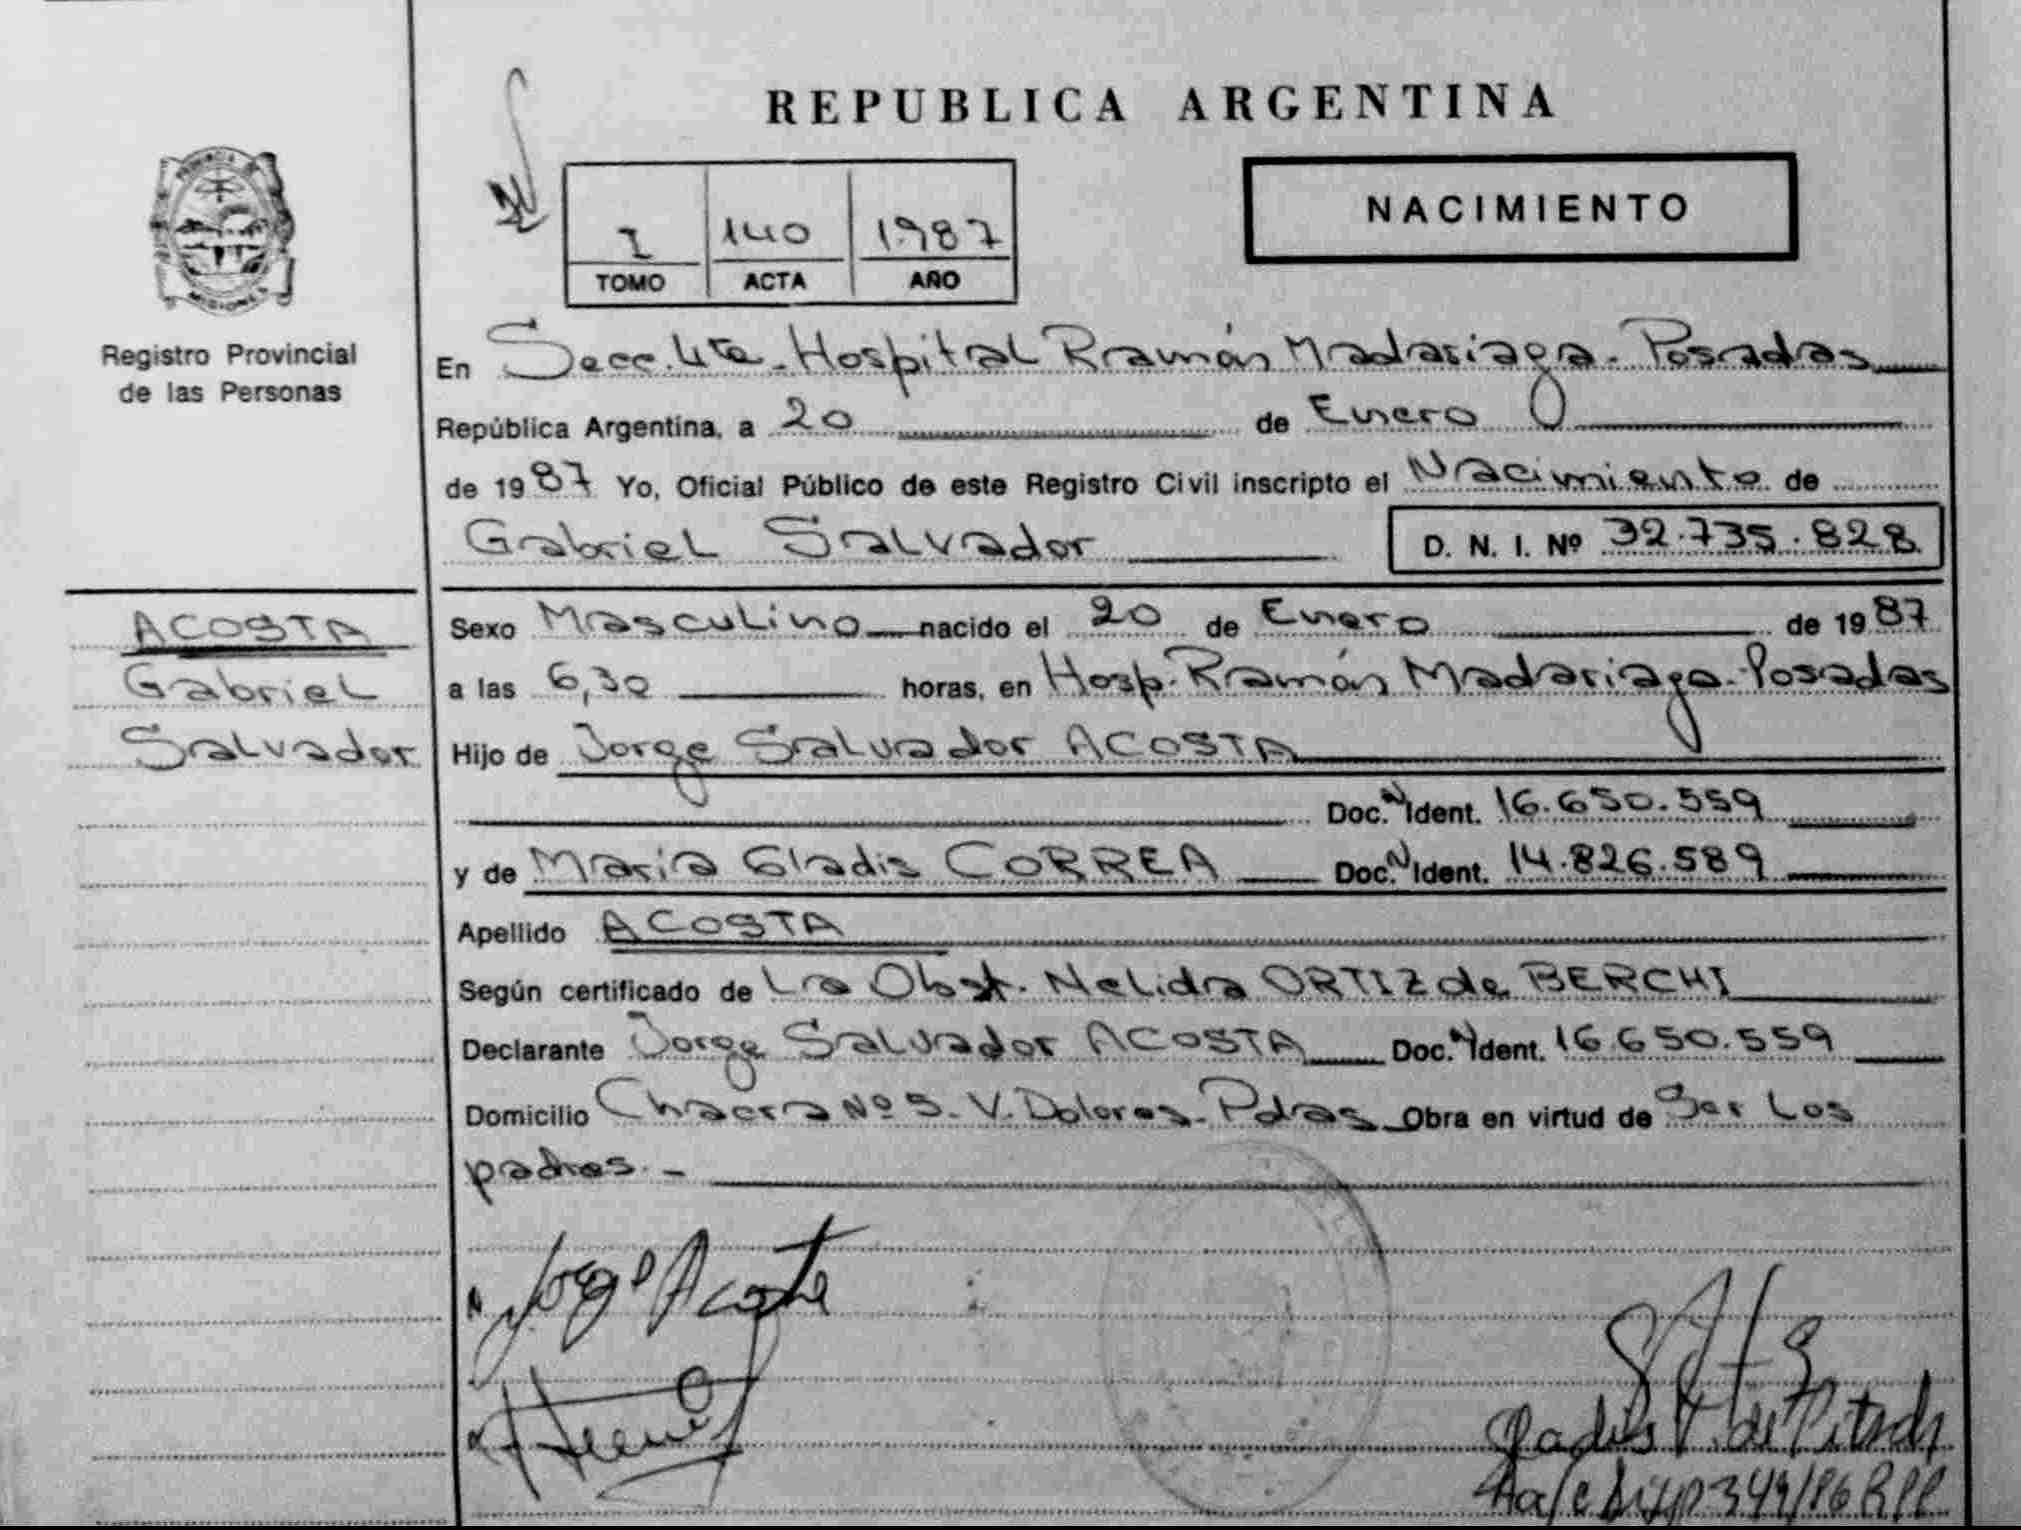 REPUBLICA ARGENTINA
I 140 1987
TOMO ACTA AÑO
NACIMIENTO
Registro Provincial
de las Personas
En Secc. 4ta - Hospital Ramón Madariaga - Posadas
República Argentina, a 20 de Enero
de 1987 Yo, Oficial Público de este Registro Civil inscripto el Nacimiento de
Gabriel Salvador D. N. I. Nº 32.735.828
ACOSTA
Gabriel
Salvador
Sexo Masculino nacido el 20 de Enero de 1987
a las 6,30 horas, en Hosp. Ramón Madariaga - Posadas
Hijo de Jorge Salvador ACOSTA
Doc. N Ident. 16.650.559
y de María Gladis CORREA Doc. N Ident. 14.826.589
Apellido ACOSTA
Según certificado de La Obst. Nelida ORTIZ de BERCHI
Declarante Jorge Salvador ACOSTA Doc. N Ident. 16.650.559
Domicilio Chacra Nº 5 - V. Dolores - Pdas Obra en virtud de Ser Los
padres. -
Jorge Acosta
Gladis de